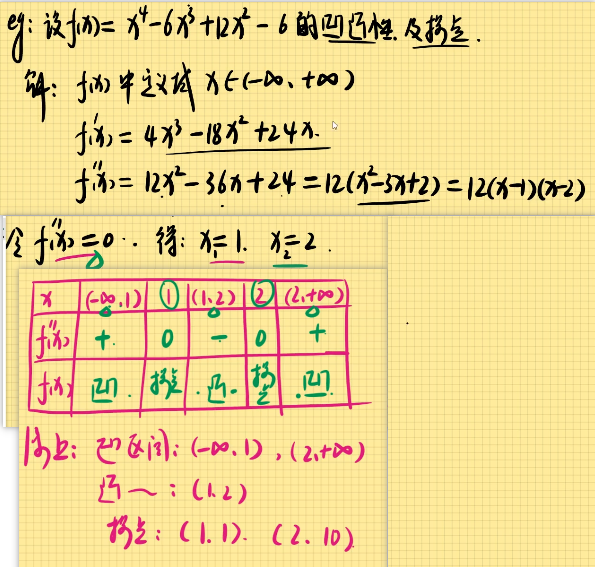 eg: 设f(x)= x⁴-6x³+12x²-6 的凹凸性.及拐点.
解: f(x)中定义域 x∈(-∞、+∞)
f'(x)= 4x³-18x²+24x.
f''(x)= 12x²-36x+24=12(x²-3x+2)=12(x-1)(x-2)
令 f''(x)=0. 得: x₁=1. x₂=2.
x (-∞,1) 1 (1,2) 2 (2,+∞)
f''(x) + 0 - 0 +
f(x) 凹. 拐点 .凸. 拐点 .凹
综上: 凹区间: (-∞,1), (2,+∞)
凸~: (1,2)
拐点: (1.1). (2.10)